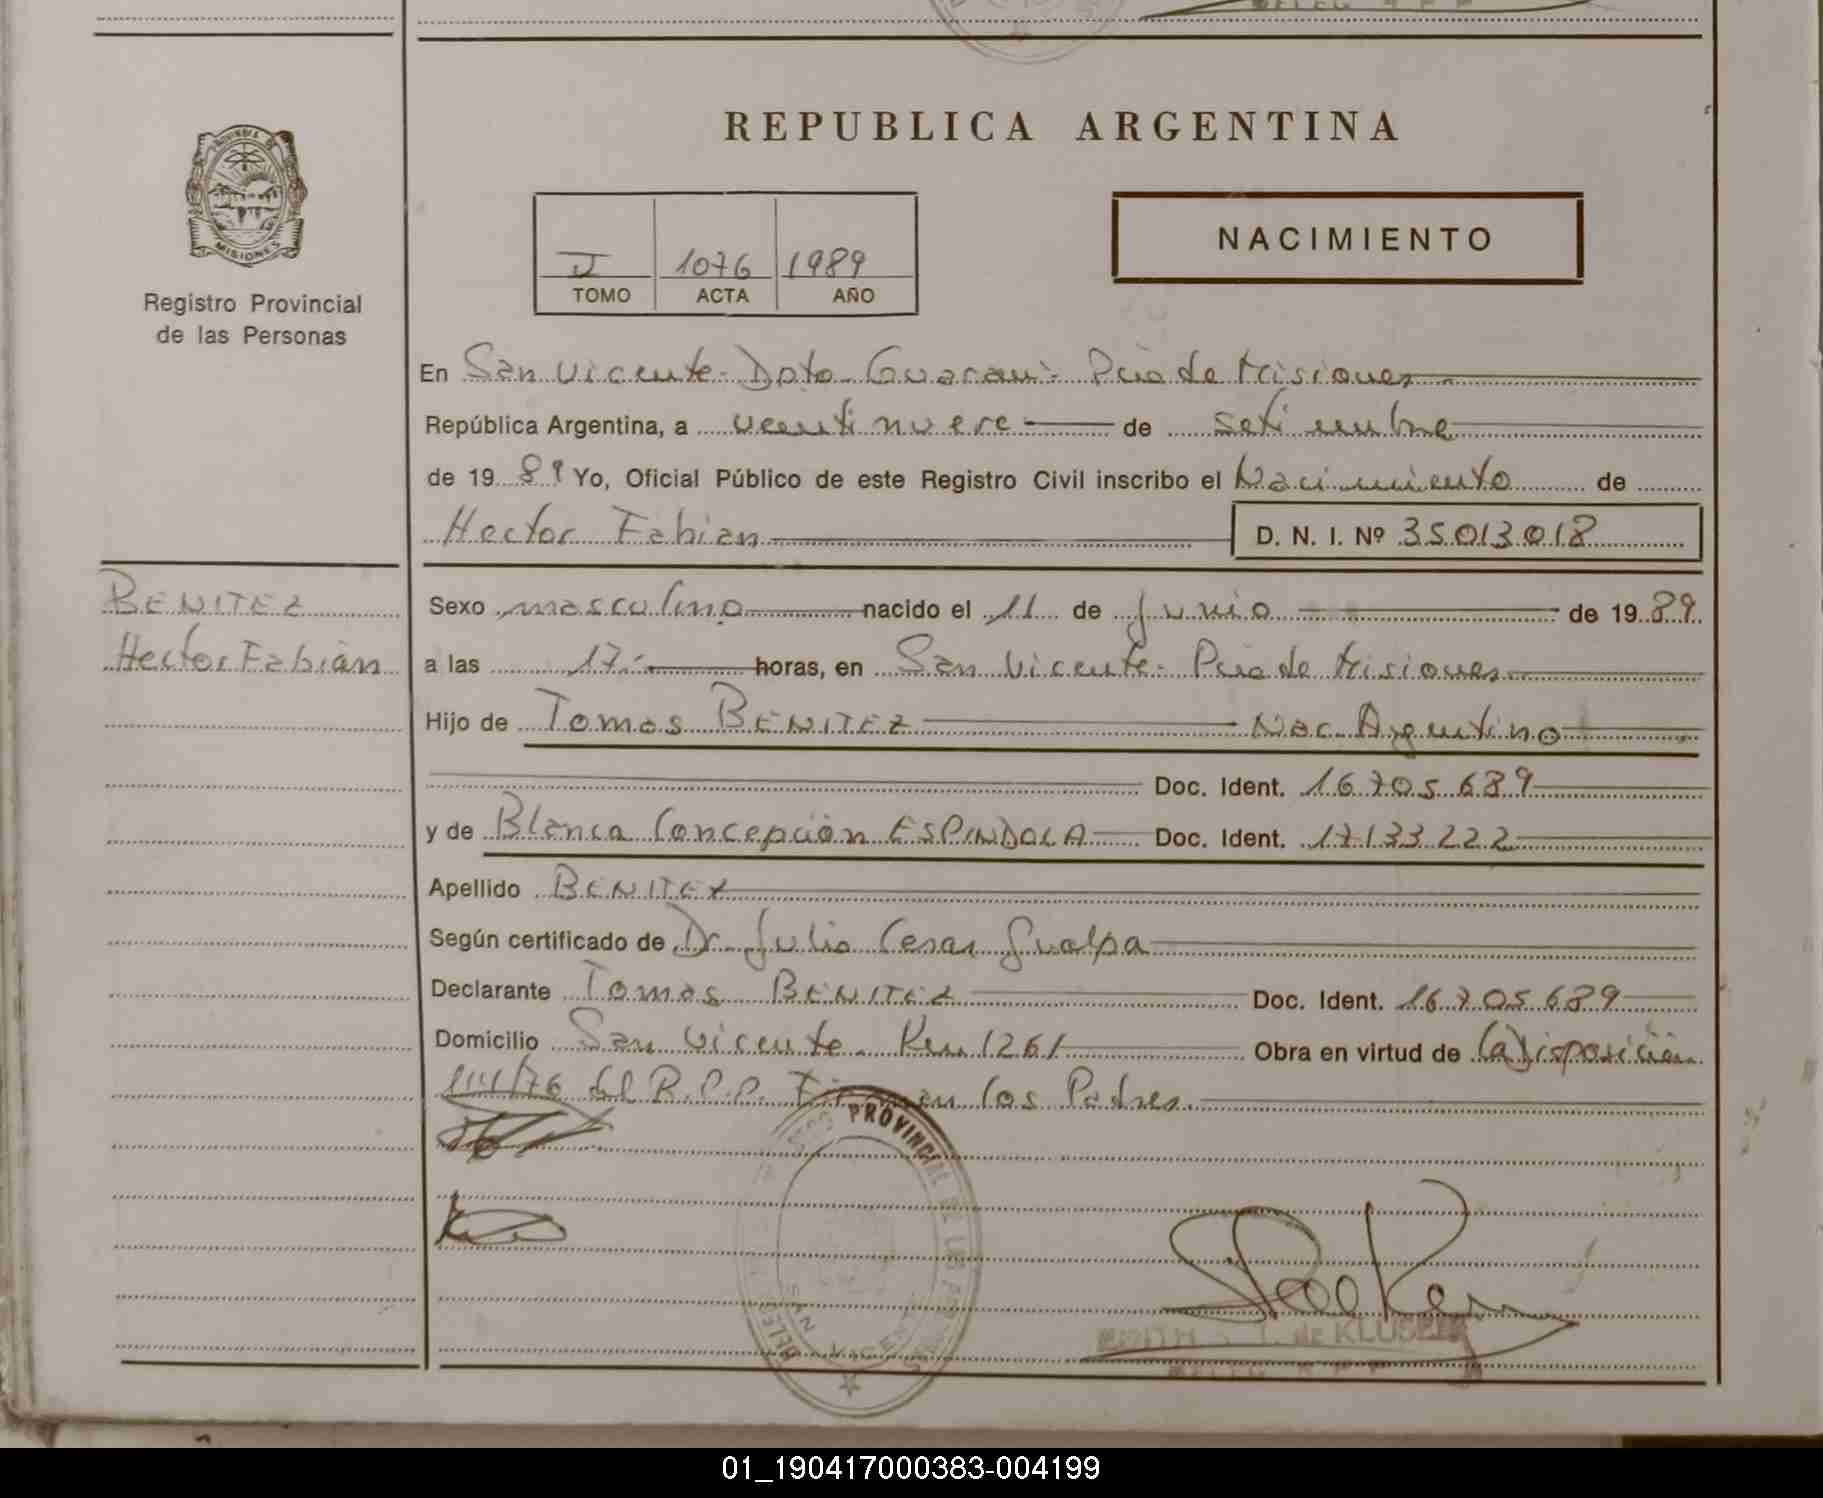 REPUBLICA ARGENTINA
PROVINCIA DE
MISIONES
Registro Provincial
de las Personas
1076 1989
TOMO ACTA AÑO
NACIMIENTO
En San Vicente - Dpto Guarani - Pcia de Misiones
República Argentina, a veintinueve de setiembre
de 1989 Yo, Oficial Público de este Registro Civil inscribo el Nacimiento de
Hector Fabian D. N. I. Nº 35013018
BENITEZ
Hector Fabián
Sexo masculino nacido el 11 de Junio de 1989.
a las 17.- horas, en San Vicente - Pcia de Misiones
Hijo de Tomas BENITEZ Nac. Argentino
Doc. Ident. 16.705.689
y de Blanca Concepción ESPINDOLA Doc. Ident. 17.133.222
Apellido BENITEZ
Según certificado de Dr. Julio Cesar Gualpa
Declarante Tomas BENITEZ Doc. Ident. 16.705.689
Domicilio San Vicente - Km 1261 Obra en virtud de la Disposición
111/76 del R.P.P. Firman los Padres.
PROVINCIAL DE LAS
SAN VICENTE
EDITH DE
DELEG R P P
01_190417000383-004199